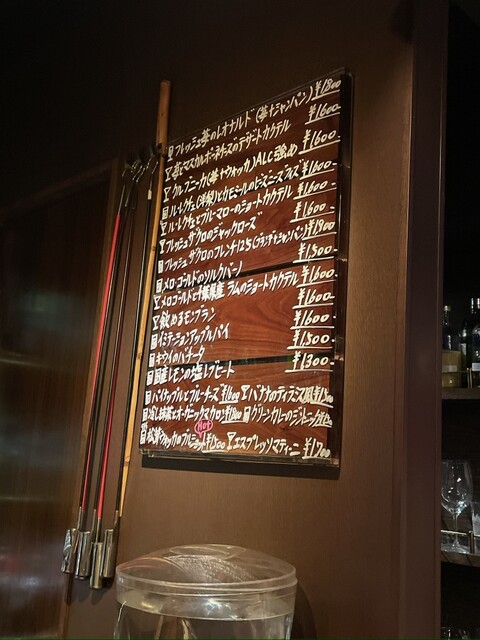 フレッシュ苺のレオナルド(苺+シャンパン) ¥1800
苺とマスカルポーネチーズのデザートカクテル ¥1600-
クループニーカ(苺+ウォッカ)ALC強め ¥1600-
ル・レクチェ(洋梨)とカモミールの ¥1600-
ル・レクチェとブルマローのショートカクテル ¥1600-
フレッシュザクロのジャックローズ ¥1600-
フレッシュザクロのフレンチ125(グランデ+シャンパン) ¥1900
メローゴールドのソルクバーン ¥1500
メローゴールドと千葉県産ラムのショートカクテル ¥1600-
飲めるモンブラン ¥1600-
イミテーションアップルパイ ¥1600-
キウイのバチーダ ¥1500
国産レモンの塩レブヒート ¥1300-
パイナップルとブルーチーズ ¥1600 バナナのティラミス風 ¥1500
抹茶とオーガニックマカロン ¥1800 グリーンカレーのジントニック
Hot
ウォッカのブルショット ¥1500 エスプレッソマティーニ ¥1700